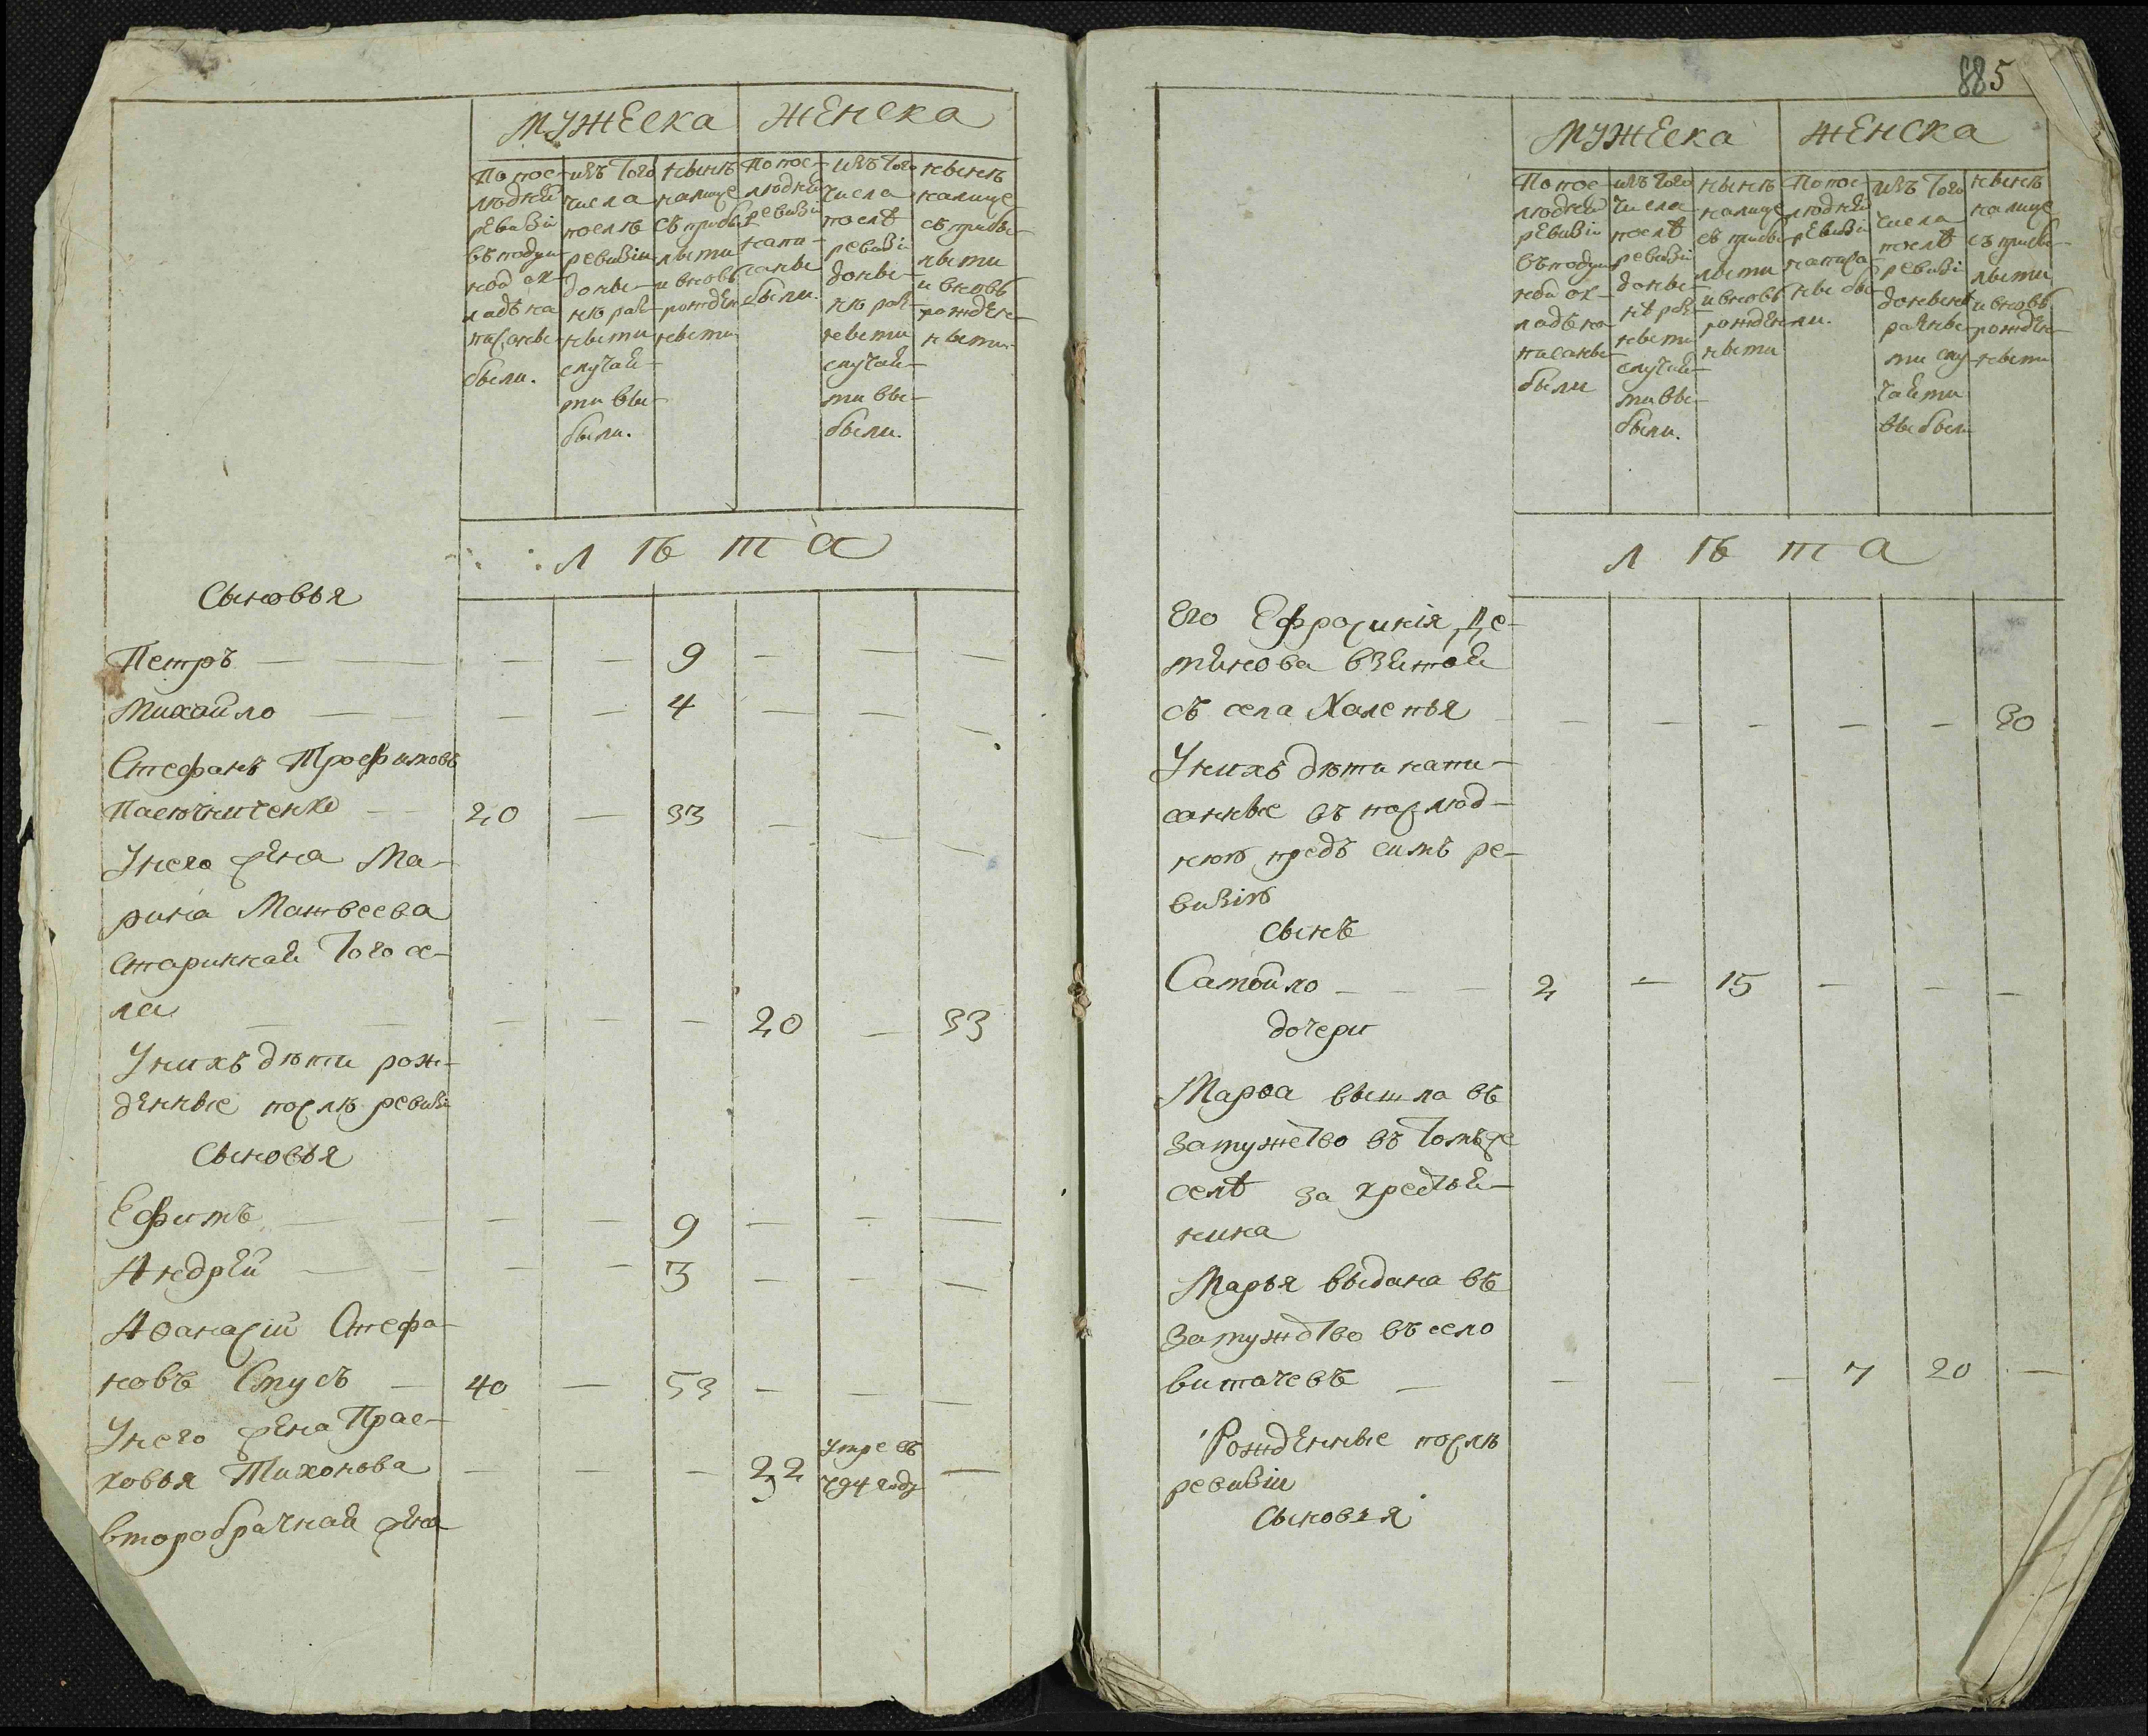 мужеска женска
По пос-
лѣдней
ревизіи
въ подуш-
ной ок-
ладъ на-
писаны
были.
изъ того
числа
послѣ
ревизіи
до ны-
нѣ раз-
ными
случая-
ми вы-
были.
нынѣ
налице
съ прибы-
лыми
и вновь
рожден-
ными
По пос-
лѣдней
ревизіи
напи-
саны
были.
изъ того
числа
послѣ
ревизіи
до ны-
нѣ раз-
ными
случая-
ми вы-
были.
нынѣ
налице
съ прибы-
лыми
и вновь
рожден-
ными
лѣта
Сыновья
Петръ — — — — 9 — — —
Михайло — — — — 4 — — —
Стефанъ Трофимовъ
Пасѣчниченко — 20 — 33 — — —
У него жена Ма-
рина Матвеева
старинная того се-
ла — — — — — 20 — 33
У нихъ дѣти рож-
денные послѣ ревизіи
Сыновья
Ефимъ — — — — 9 — — —
Андрей — — — — 3 — — —
Аѳанасій Стефа-
новъ Стусъ — 40 — 53 — — —
У него жена Прас-
ковья Тихонова — — — 32 умре въ 794 году —
второбрачная жена
885
мужеска женска
По пос-
лѣдней
ревизіи
въ подуш-
ной ок-
ладъ на-
писаны
были
изъ того
числа
послѣ
ревизіи
до ны-
нѣ раз-
ными
случая-
ми вы-
были.
нынѣ
налице
съ прибы-
лыми
и вновь
рожден-
ными
По пос-
лѣдней
ревизіи
написа-
ны бы-
ли.
изъ того
числа
послѣ
ревизіи
до нынѣ
разны-
ми слу-
чаями
выбыли
нынѣ
налице
съ прибы-
лыми
и вновь
рожден-
ными
лѣта
Его Ефросинія Де-
мянова взятая
съ села Халепья — — — — — 30
У нихъ дѣти напи-
санные въ послѣд-
ней предъ симъ ре-
визіи
сынъ
Самойло — — — 2 — 15 — — —
дочери
Марѳа вышла въ
замужство въ томъ же
селѣ за крестья-
нина
Марья выдана въ
замужство въ село
Витачевъ — — — — 7 20 —
Рожденные послѣ
ревизіи
Сыновья